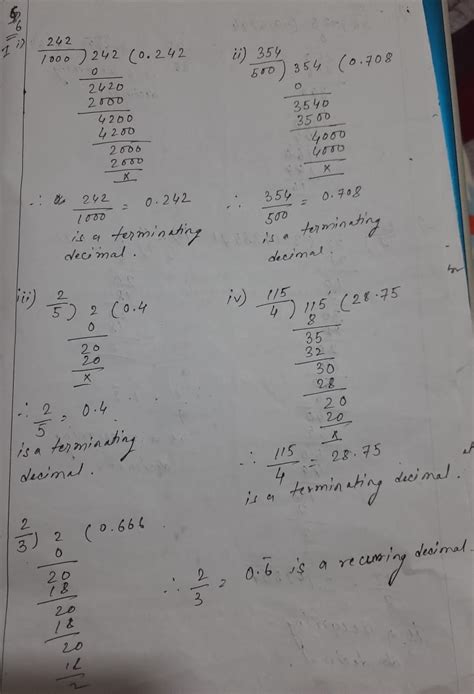 6
1 i) 242/1000 ) 242 ( 0.242
0
2420
2000
4200
4200
2000
2000
x
∴ 242/1000 = 0.242
is a terminating
decimal.
ii) 354/500 ) 354 ( 0.708
0
3540
3500
4000
4000
x
∴ 354/500 = 0.708
is a terminating
decimal.
iii) 2/5 ) 2 ( 0.4
0
20
20
x
∴ 2/5 = 0.4
is a terminating
decimal.
iv) 115/4 ) 115 ( 28.75
8
35
32
30
28
20
20
x
∴ 115/4 = 28.75
is a terminating decimal.
2/3 ) 2 ( 0.666
0
20
18
20
18
20
18
2
∴ 2/3 = 0.6̄ is a recurring decimal.